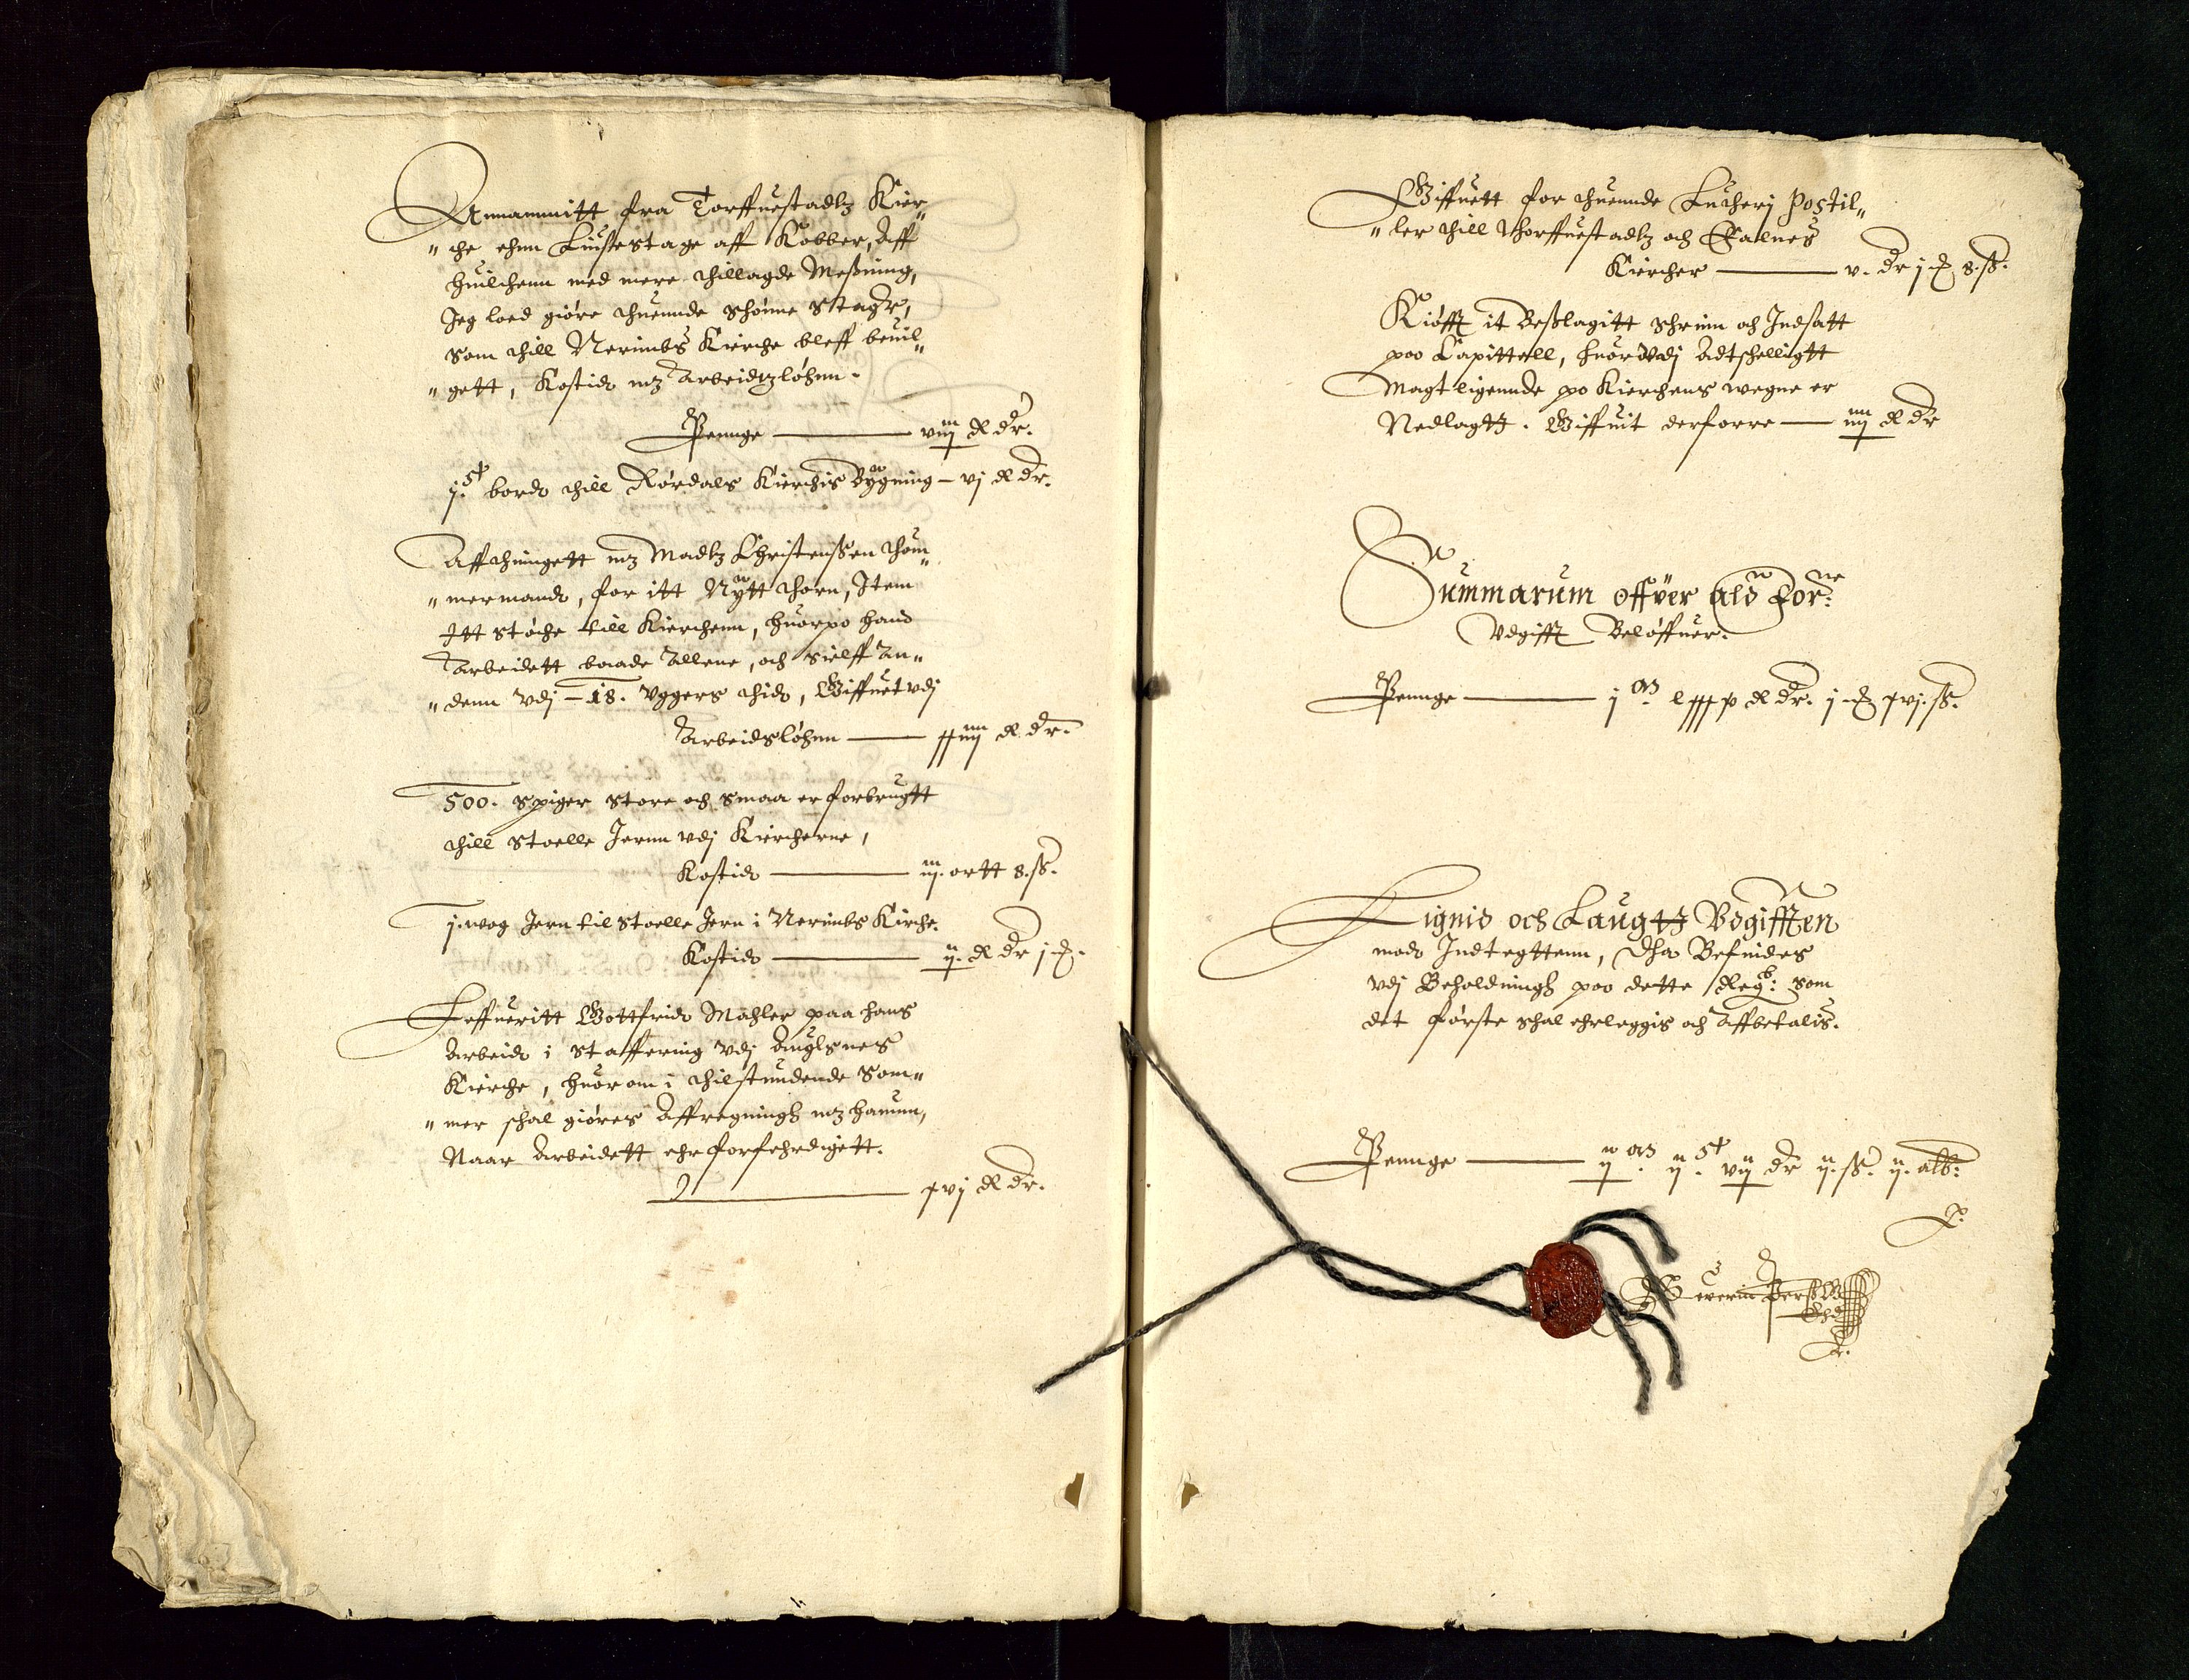 Annammitt fra Torffuestadtz Kier„
„che ehnn Liusestage aff Kobber, Aff
huilchenn med mere thillagde Messing,
Jeg loed giøre thuennde schønne Stager,
som thill Nerimbs Kirche bleff beuil„
„gett, Kostid mz Arbeidtzløhnn.
Pennge — viij R dr.
j. St bord thill Rørdals Kierchis Bygning — vj R dr.
Aff thingett mz Madtz Christenssen thøm„
„mermand, for itt Nÿtt thorn, Item
Itt støche till Kierchenn, huorpo hand
Arbeidett baade Allene, och sielff An„
„denn vdj — 18. Uggers thid, Giffuet vdj
Arbeidsløhnn — xxiiij R dr.
500. spiger store och smaa er forbrugtt
thill stoelle Jernn vdj Kiercherne,
Kostid — iij. ortt 8. ss.
j. wog Jern til stoelle Jern i Nerimbs Kirche.
Kostid — ij. R dr j
Leffueritt Gottfrid Mahler paa hans
Arbeid i staffering vdj Auglsnes
Kierche, huorom i thilstundende Som„
„mer schal giøres Affregningh mz hannem,
Naar Arbeidett ehr forfehrdigett.
xvj R dr.
Giffuett for thuennde Lutherj Postil„
„ler thill Thorffuestadtz och Falnes
Kiercher — v. dr j 8. ss.
Kiøfft it Beslagitt schrinn och Indsatt
poo Capittell, huorvdj Adtschelligtt
Magt ligennde po Kierchens wegne er
Nedlagtt. Giffuit derforre — iiij R dr
Summarum offver ald Forne
Vdgifft Beløffuer.
Pennge — j M lxxxx R dr. j xvj. ss.
Lignid och Laugtt Vdgifften
mod Indtegttenn, Tha Befindes
vdj Beholdningh poo dette Regb: som
det første schal ehrleggis och Affbetalis.
Pennge — ij M ij St vij dr ij. ss. ij. alb:
Severin Perss